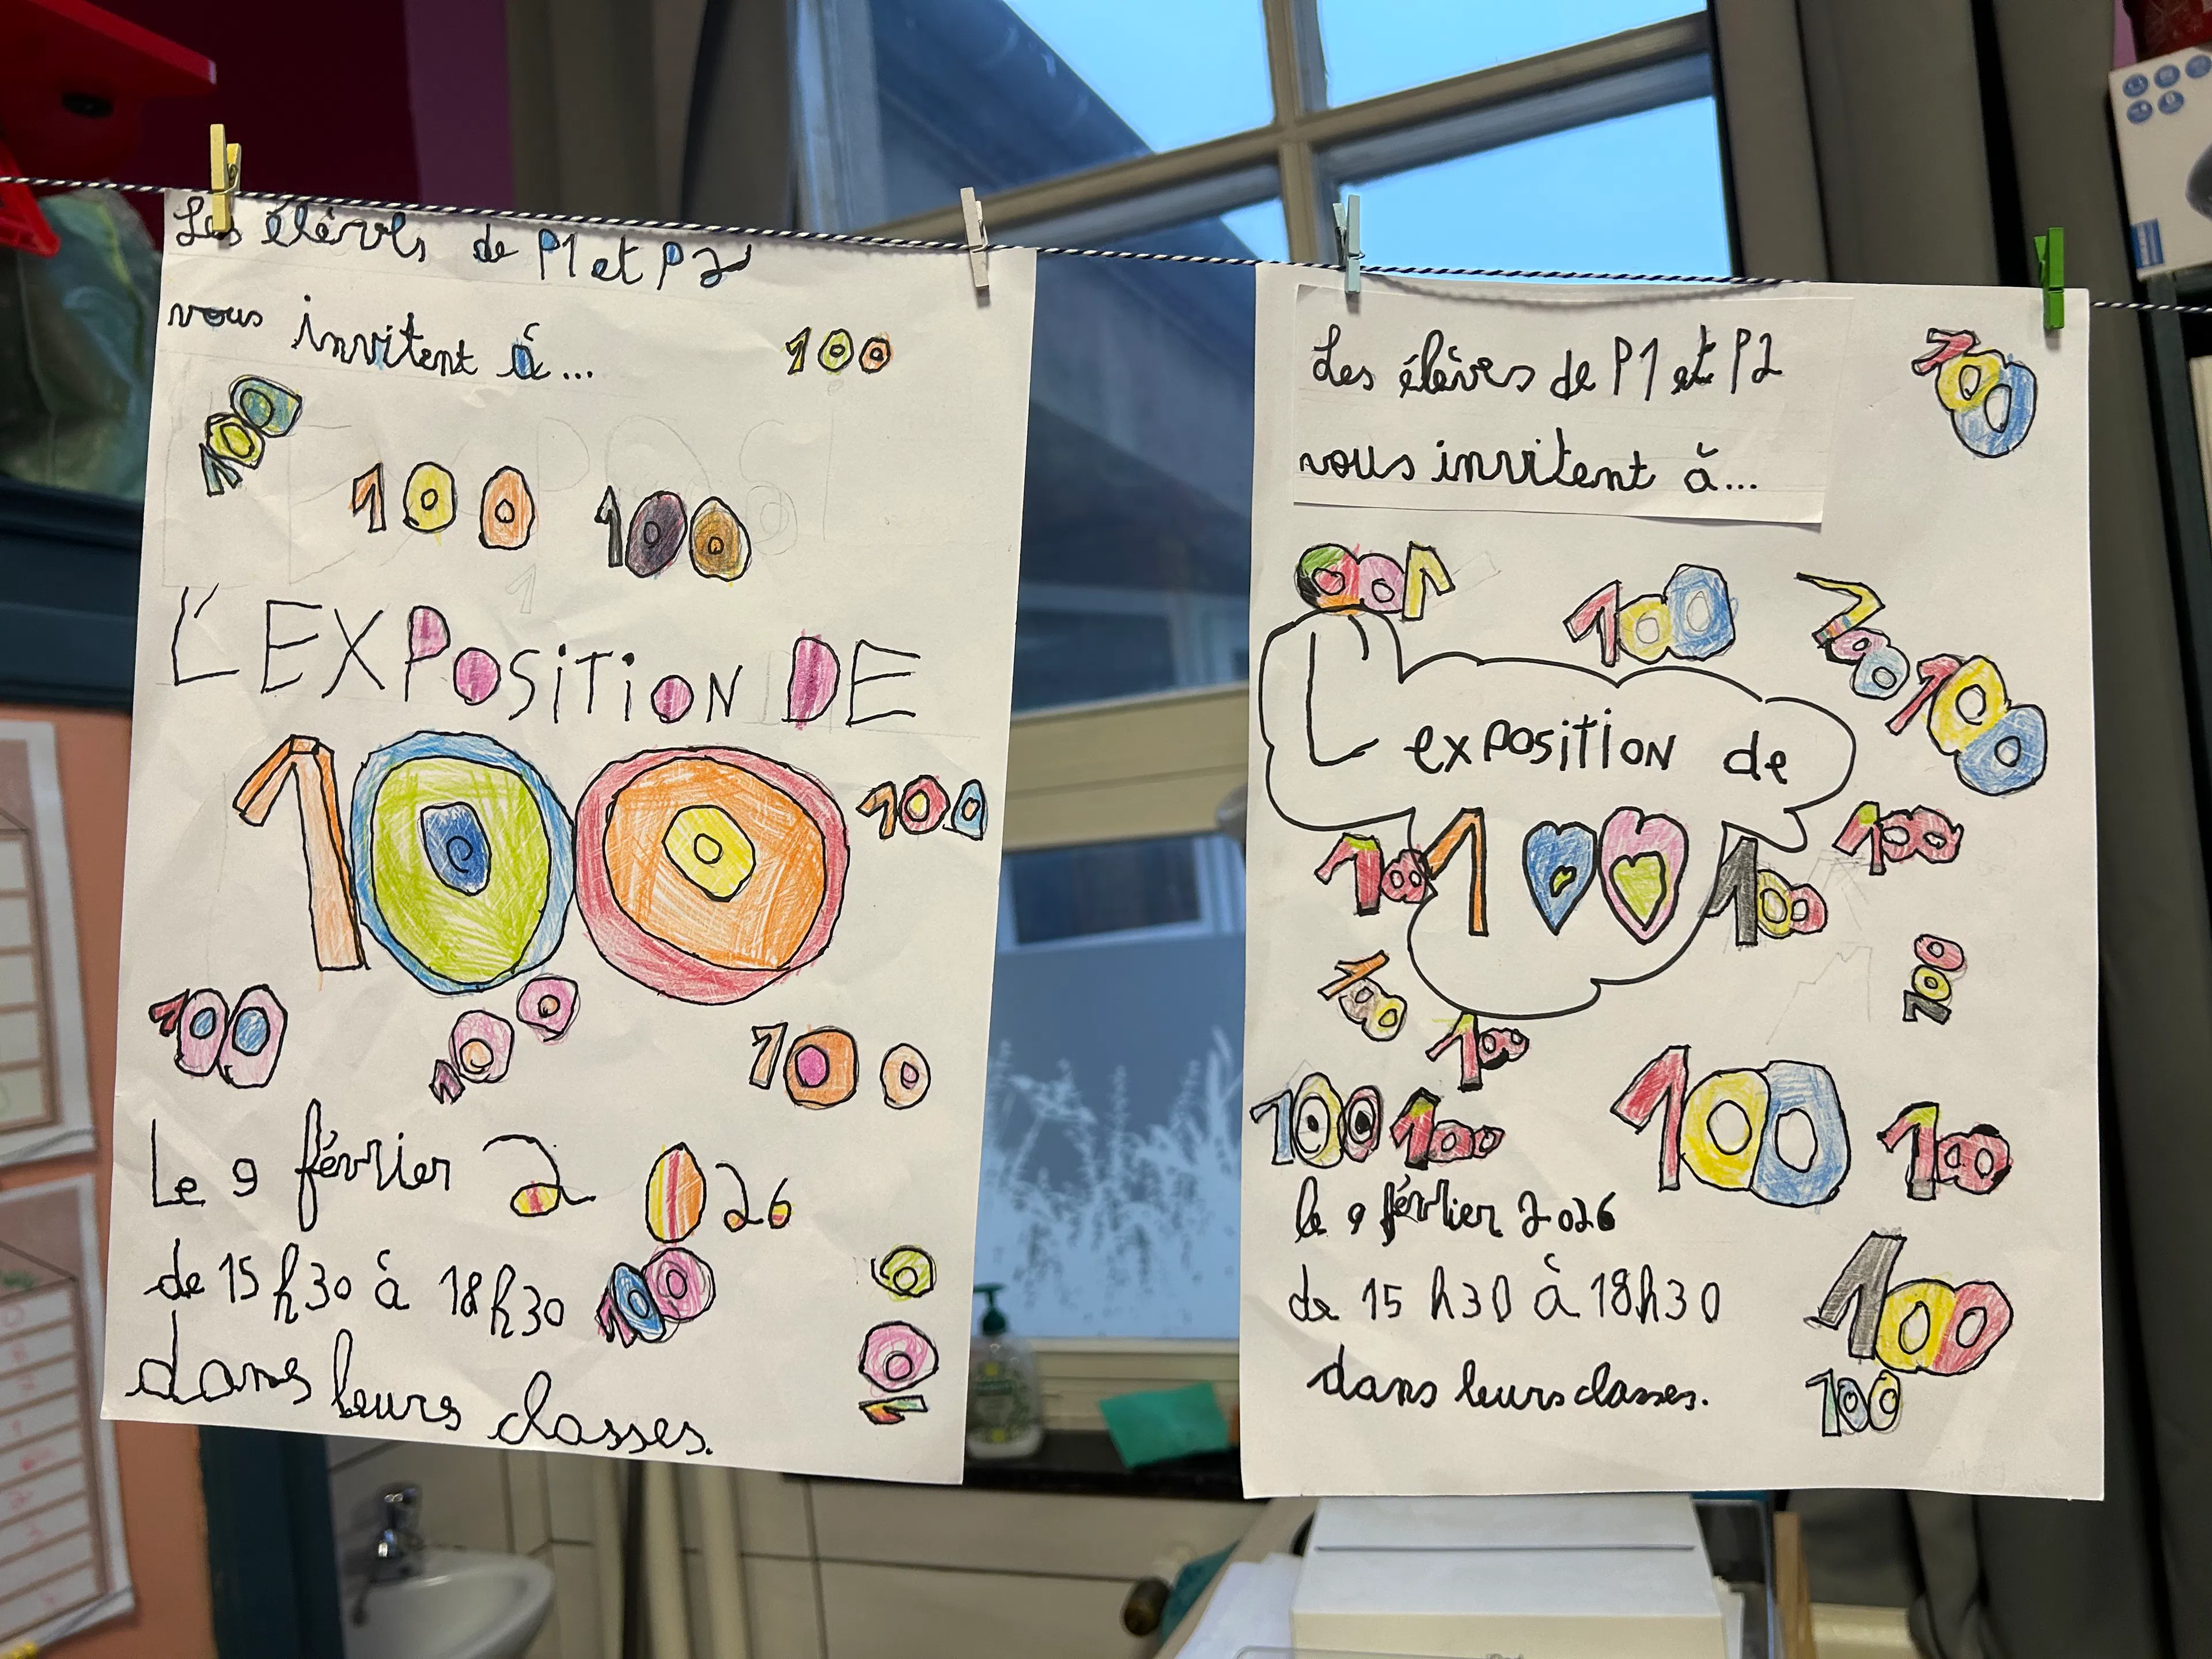 Les élèves de P1 et P2
vous invitent à...
100
100
100
100
L'EXPOSITION DE
100
100
100
100
100
Le 9 février 2026
de 15h30 à 18h30
100
100
dans leurs classes.
Les élèves de P1 et P2
vous invitent à...
100
100
100
100
100
L'exposition de
100
100
100
100
100
100
100
100
100
100
100
le 9 février 2026
de 15h30 à 18h30
100
dans leurs classes.
100